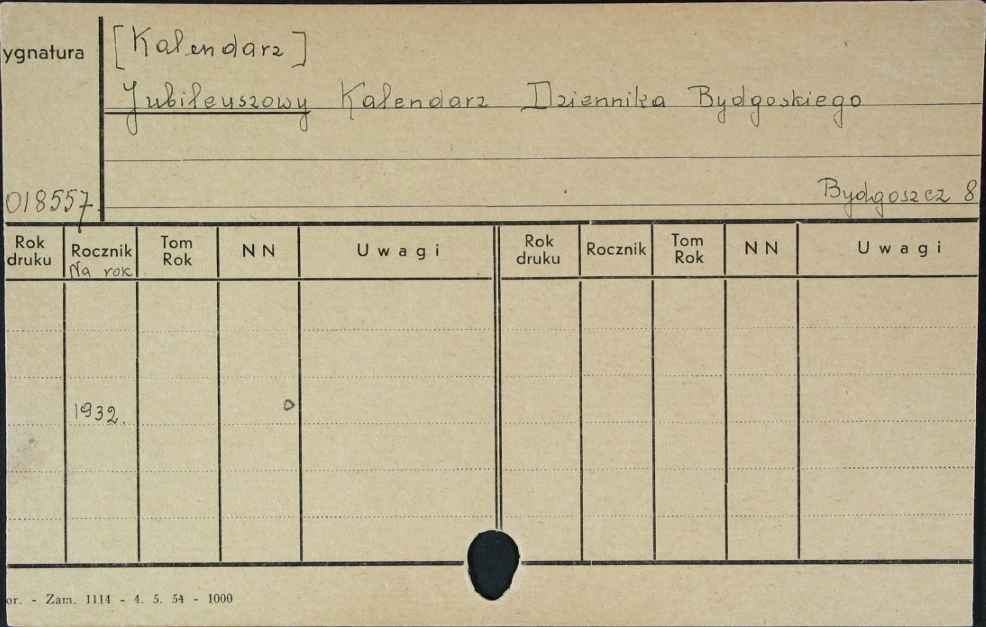 ygnatura
[Kalendarz]
Jubileuszowy Kalendarz Dziennika Bydgoskiego
018557.
Bydgoszcz 8
Rok druku Rocznik Na rok Tom Rok NN Uwagi Rok druku Rocznik Tom Rok NN Uwagi
1932.
or. - Zam. 1114 - 4. 5. 54 - 1000